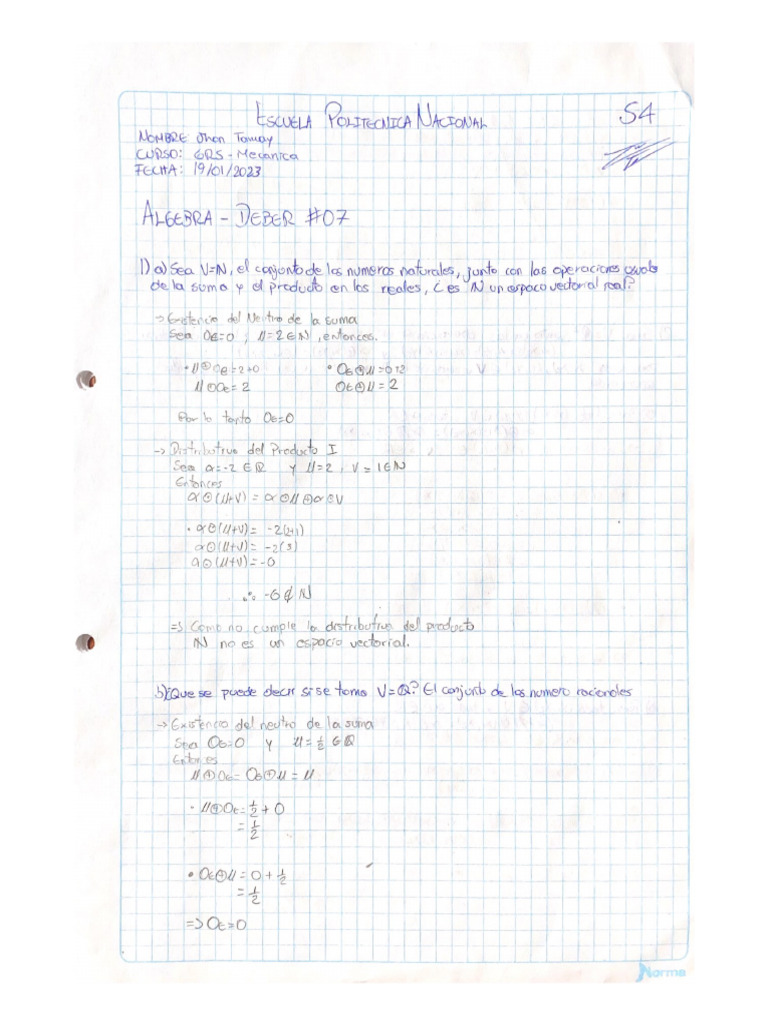 ESCUELA POLITECNICA NACIONAL
54
NOMBRE Jhon Tamay
CURSO: GR5 - Mecanica
FECHA: 19/01/2023
ALGEBRA - DEBER #07
1) a) Sea V=N, el conjunto de los numeros naturales, junto con las operaciones
de la suma y el producto en los reales, ¿es N un espaco vectorial real?
-> Existencia del Neutro de la suma
Sea OE=0 ; u=2 ∈ N, entonces.
• u⊕OE=2+0 • OE⊕u=0+2
u⊕OE=2 OE⊕u=2
Por lo tanto OE=0
-> Distributiva del Producto I
Sea α=-2 ∈ Q y u=2, V=1 ∈ N
Entonces
α⊙(u+V) = α⊙u⊕α⊙V
• α⊙(u+V)= -2(2+1)
α⊙(u+V)= -2(3)
α⊙(u+V)= -6
∴ -6 ∉ N
=> Como no cumple la distributiva del producto
N no es un espacio vectorial.
b) ¿Que se puede decir si se toma V=Q? El conjunto de los numero racionales
-> Existencia del neutro de la suma
Sea OE=0 y u=1/2 ∈ Q
Entonces
u⊕OE= OE⊕u= u
• u⊕OE=1/2+0
=1/2
• OE⊕u=0+1/2
=1/2
=> OE=0
Norma